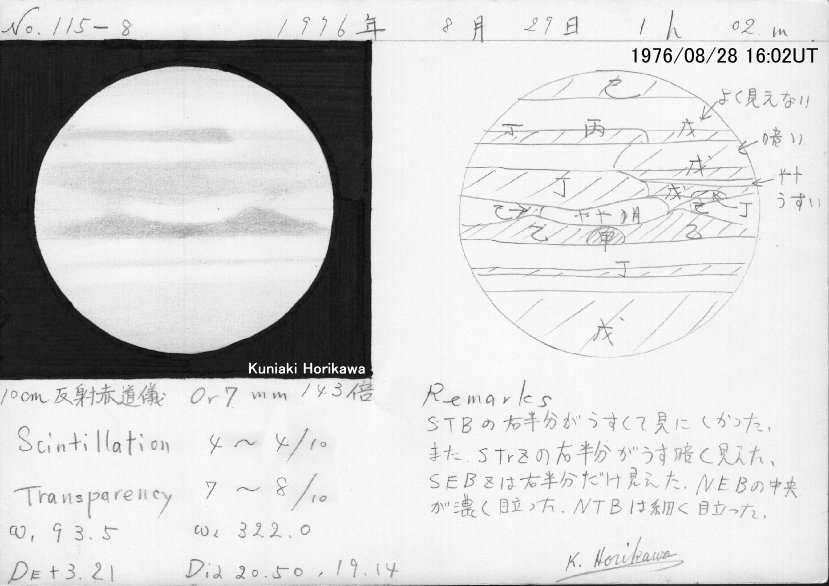 No. 115-8 1976年 8月 29日 1h 02.m
1976/08/28 16:02UT
よく見えない
己
丁 丙 戊
暗い
戊
やや
うすい
丁 戊
乙 やや明 乙 丁
乙 甲 乙
丁
戊
Kuniaki Horikawa
10cm反射赤道儀 Or7mm 143倍
Scintillation 4～4/10
Transparency 7～8/10
ω₁ 93.5 ω₂ 322.0
DE+3.21 Dia 20.50, 19.14
Remarks
STBの右半分がうすくて見にくかった.
また STrZの右半分がうす暗く見えた.
SEBZは右半分だけ見えた. NEBの中央
が濃く目立った. NTBは細く目立った.
K. Horikawa